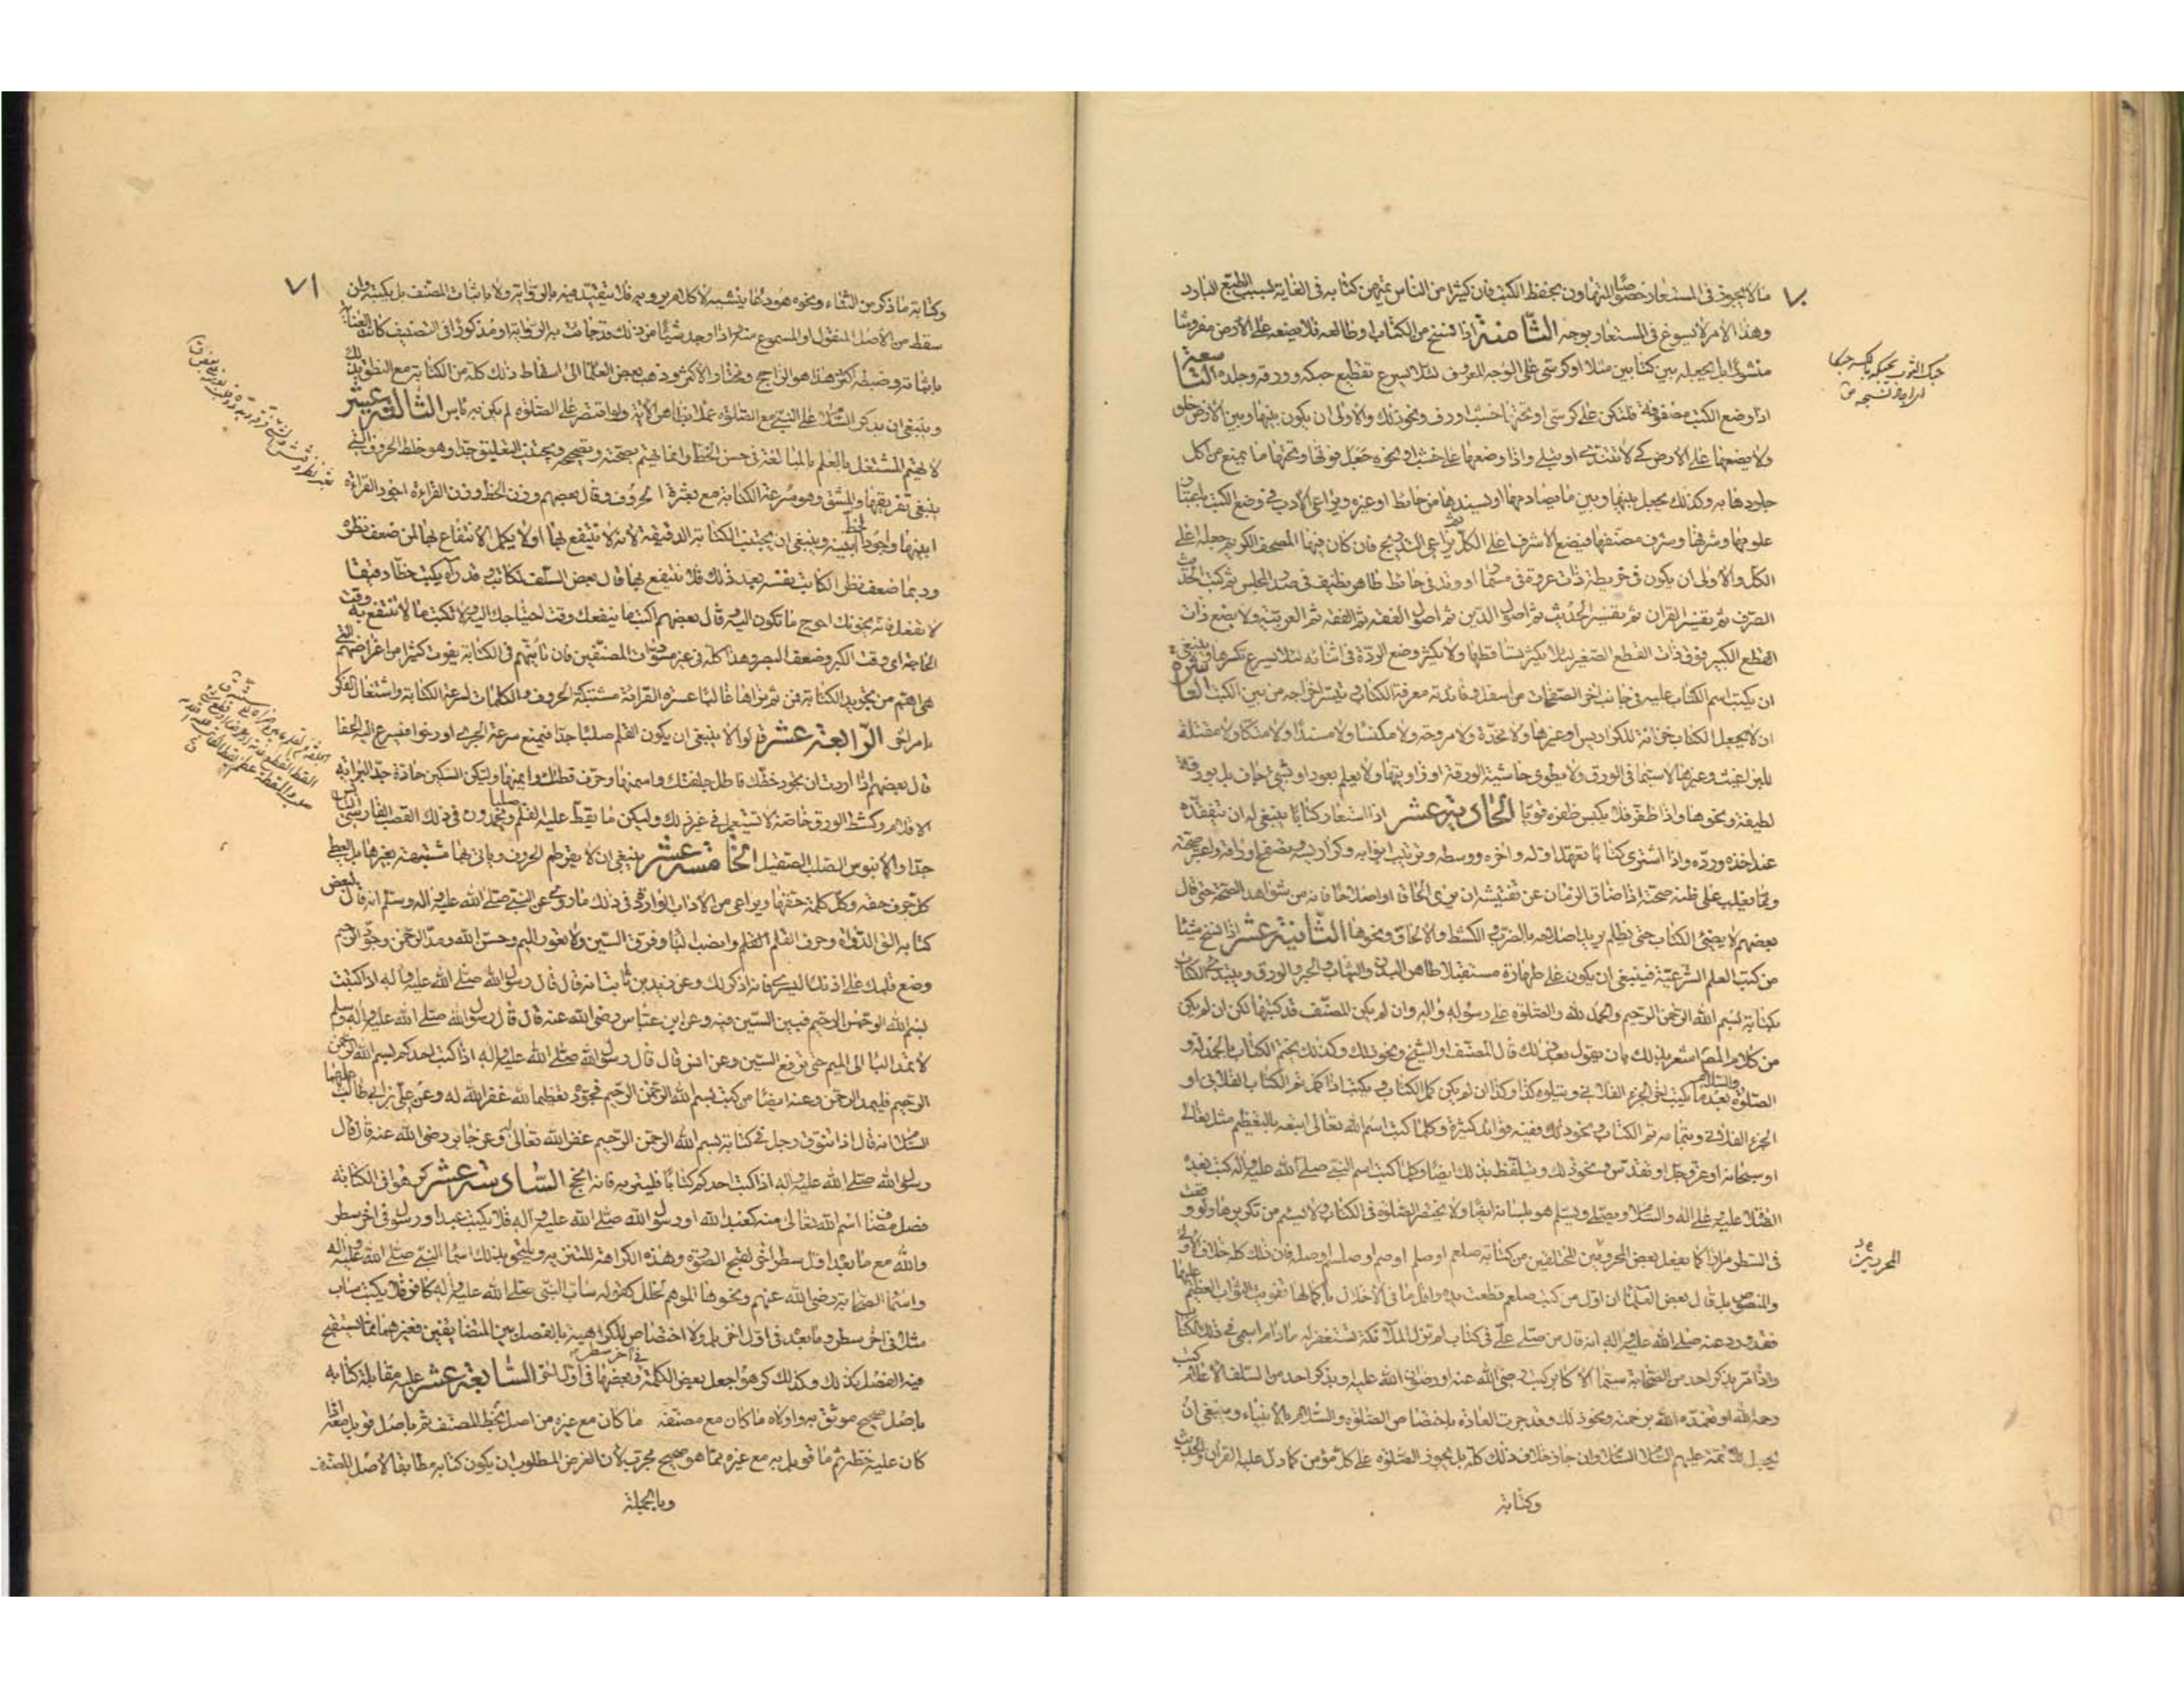 ٧٠
ما لا يجوز في المستعار خصوصا المتهاون بحفظ الكتب فان كثيرا من الناس يمتهن كتابه في الغاية بسبب الطبع البارد
وهذا الامر لا يسوغ في المستعار بوجه الثامنة اذا نسخ من الكتاب او طالعه فلا يضعه على الارض مفروشا
منشورا بل يجعله بين كتابين مثلا او كرسي على الوجه المعروف لئلا يسرع تقطيع حبكه وورقه وجلده التاسعة
اذا وضع الكتب مصفوفة فلتكن على كرسي او تحتها خشب او رف ونحو ذلك والاولى ان يكون بينها وبين الارض خلو
ولا يضعها على الارض كي لا تتندى او تبلى واذا وضعها على خشب او نحوه جعل فوقها وتحتها ما يمنع من اكل
جلودها به وكذلك يجعل بينها وبين ما يصادمها او يسندها من حائط او غيره ويراعي الادب في وضع الكتب باعتبار
علومها وشرفها وشرف مصنفها فيضع الاشرف اعلى الكل ثم يراعي التدريج فان كان فيها المصحف الكريم جعله اعلى
الكل والاولى ان يكون في خريطة ذات عروة في مسمار او وتد في حائط طاهر نظيف في صدر المجلس ثم كتب الحديث
الصرف ثم تفسير القران ثم تفسير الحديث ثم اصول الدين ثم اصول الفقه ثم الفقه ثم العربية ولا يضع ذات
القطع الكبير فوق ذات القطع الصغير لئلا يكثر تساقطها ولا يكثر وضع الردة في اثنائه لئلا يسرع تكسرها وينبغي
ان يكتب اسم الكتاب عليه في جانب اخر الصفحات من اسفل وفائدته معرفة الكتاب وتيسر اخراجه من بين الكتب العاشرة
ان لا يجعل الكتاب خزانة للكراريس او غيرها ولا مخدة ولا مروحة ولا مكنسا ولا مسندا ولا متكا ولا مقتلة
للبراغيث وغيرها لا سيما في الورق ولا يطوي حاشية الورقة او زاويتها ولا يعلم بعود او شيء جاف بل بورقة
لطيفة ونحوها واذا ظفر فلا يكبس ظفره قويا الحادية عشر اذا استعار كتابا ينبغي له ان يتفقده
عند اخذه ورده واذا اشترى كتابا تعهد اوله واخره ووسطه وترتيب ابوابه وكراريسه وتصفح اوراقه واعتبر صحته
ومما يغلب على ظنه صحته اذا ضاق الزمان عن تفتيشه ان يرى الحاقا او اصلاحا فانه من شواهد الصحة حتى قال
بعضهم لا يضيء الكتاب حتى يظلم يريد اصلاحه بالضرب والكشط والالحاق ونحوها الثانية عشر اذا نسخ شيئا
من كتب العلم الشرعية فينبغي ان يكون على طهارة مستقبلا طاهر البدن والثياب والحبر والورق ويبتدي الكتاب
بكتابة بسم الله الرحمن الرحيم والحمد لله والصلوة على رسوله واله وان لم يكن المصنف قد كتبها لكن ان لم يكن
من كلام المصنف اشعر بذلك بان يقول بعد ذلك قال المصنف او الشيخ ونحو ذلك وكذلك يختم الكتاب بالحمدلة و
الصلوة والسلام بعد ما يكتب اخر الجزء الفلاني ويتلوه كذا وكذا ان لم يكن كمل الكتاب ويكتب اذا كمل تم الكتاب الفلاني او
الجزء الفلاني وبتمامه تم الكتاب ونحو ذلك ففيه فوائد كثيرة وكلما كتب اسم الله تعالى اتبعه بالتعظيم مثل تعالى
او سبحانه او عز وجل او تقدس ونحو ذلك ويتلفظ بذلك ايضا وكلما كتب اسم النبي صلى الله عليه واله كتب بعده
الصلاة عليه وعلى اله والسلام ويصلي ويسلم هو بلسانه ايضا ولا يختصر الصلوة في الكتاب ولا يسأم من تكريرها ولو وقعت
في السطر مرارا كما يفعل بعض المحرومين المتخلفين من كتابة صلعم او صلم او صم او صلسم او صله فان ذلك كله خلاف الاولى
والمنصوص بل قال بعض العلماء ان اول من كتب صلعم قطعت يده واقل ما في الاخلال باكمالها تفويت الثواب العظيم عليها
فقد ورد عنه صلى الله عليه واله انه قال من صلى علي في كتاب لم تزل الملائكة تستغفر له ما دام اسمي في ذلك الكتاب
واذا مر بذكر احد من الصحابة سيما الاكابر كتب رضي الله عنه او رضوان الله عليه وبذكر احد من السلف الاعلام كتب
رحمه الله او تغمده الله برحمته ونحو ذلك وقد جرت العادة باختصاص الصلوة والسلام بالانبياء وينبغي ان
يجعل للائمة عليهم السلام السلام وان جاز خلاف ذلك كله بل يجوز الصلوة على كل مؤمن كما دل عليه القران والحديث
وكتابة
٧١
وكتابة ما ذكر من الثناء ونحوه هو دعاء ينشيه لا كلام يرويه فلا يتقيد فيه بالرواية ولا باثبات المصنف بل يكتبه وان
سقط من الاصل المنقول او المسموع منه اذا وجد شيئا من ذلك قد جائت به الرواية او مذكورا في التصنيف كانت العناية
باثباته وضبطه اكثر هذا هو الراجح ومختار الاكثر وذهب بعض العلماء الى اسقاط ذلك كله من الكتابة مع النطق بذلك
وينبغي ان يذكر السلام على النبي مع الصلوة عملا بظاهر الاية ولو اقتصر على الصلوة لم يكن به باس الثالثة عشر
لا يهتم المشتغل بالعلم بالمبالغة في حسن الخط وانما يهتم بصحته وتصحيحه ويجتنب التعليق جدا وهو خلط الحروف التي
ينبغي تفريقها والمشق وهو سرعة الكتابة مع بعثرة الحروف وقال بعضهم وزن الخط وزن القراءة اجود القراءة
ابينها واجود الخط ابينه وينبغي ان يجتنب الكتابة الدقيقة لانه لا ينتفع بها او لا يكمل الانتفاع بها لمن ضعف نظره
وربما ضعف نظر الكاتب نفسه بعد ذلك فلا ينتفع بها قال بعض السلف لكاتب وقد رآه يكتب خطا دقيقا
لا تفعل فانه يخونك احوج ما تكون اليه وقال بعضهم اكتب ما ينفعك وقت احتياجك اليه ولا تكتب ما لا تنتفع به وقت
الحاجة اي وقت الكبر وضعف البصر وهذا كله في غير مسودات المصنفين فان تانيهم في الكتابة يفوت كثيرا من اغراضهم التي
هي اهم من تجويد الكتابة فمن ثم نراها غالبا عسرة القرائة مشتبكة الحروف والكلمات لسرعة الكتابة واشتغال الفكر
بامر اخر الرابعة عشر قالوا لا ينبغي ان يكون القلم صلبا جدا فيمنع سرعة الجري او رخوا فيسرع اليه الحفا
قال بعضهم اذا اردت ان تجود خطك فاطل جلفتك واسمنها وحرف قطتك وايمنها وليكن السكين حادة جدا لبراية
الاقلام وكشط الورق خاصة لا تستعمل في غير ذلك وليكن ما يقط عليه القلم صلبا ويحمدون في ذلك القصب الفارسي اليابس
جدا والابنوس الصلب الصقيل الخامسة عشر ينبغي ان لا يقرمط الحروف وياتي بها مشتبهة بغيرها بل يعطي
كل حرف حقه وكل كلمة حقها ويراعي من الاداب الواردة في ذلك ما روي عن النبي صلى الله عليه واله وسلم انه قال لبعض
كتابه الق الدواة وحرف القلم وانصب الباء وفرق السين ولا تعور الميم وحسن الله ومد الرحمن وجود الرحيم
وضع قلمك على اذنك اليسرى فانه اذكر لك وعن زيد بن ثابت انه قال قال رسول الله صلى الله عليه واله اذا كتبت
بسم الله الرحمن الرحيم فبين السين فيه وعن ابن عباس رضي الله عنه قال قال رسول الله صلى الله عليه واله وسلم
لا تمد الباء الى الميم حتى ترفع السين وعن انس قال قال رسول الله صلى الله عليه واله اذا كتب احدكم بسم الله الرحمن
الرحيم فليمد الرحمن وعنه ايضا من كتب بسم الله الرحمن الرحيم فجوده تعظيما لله غفر الله له وعن علي بن ابي طالب عليهما
السلام انه قال اذا تنوق رجل في كتابة بسم الله الرحمن الرحيم غفر الله تعالى له وعن جابر رضي الله عنه قال قال
رسول الله صلى الله عليه واله اذا كتب احدكم كتابا فليتربه فانه انجح السادسة عشر كرهوا في الكتابة
فصل مضاف اسم الله تعالى منه كعبد الله او رسول الله صلى الله عليه واله فلا يكتب عبد او رسول في اخر سطر
والله مع ما بعد اول سطر اخر لقبح الصورة وهذه الكراهة للتنزيه ويلتحق بذلك اسماء النبي صلى الله عليه واله
واسماء الصحابة رضي الله عنهم ونحوها الموهم لخلل كقوله ساب النبي صلى الله عليه واله كافر فلا يكتب ساب
مثلا في اخر سطر وما بعد في اول اخر بل ولا اختصاص للكراهية بالفصل بين المتضايفين فغيرهما مما يستقبح
فيه الفصل كذلك وكذلك كرهوا جعل بعض الكلمة في آخر سطر وبعضها في اول اخر السابعة عشر عليه مقابلة كتابه
باصل صحيح موثوق به واولاه ما كان مع مصنفه ما كان مع غيره من اصل بخط المصنف ثم باصل قوبل معه اذا
كان عليه خطه ثم ما قوبل به مع غيره مما هو صحيح مجرب لان الغرض المطلوب ان يكون كتابه مطابقا لاصل المصنف
وبالجملة